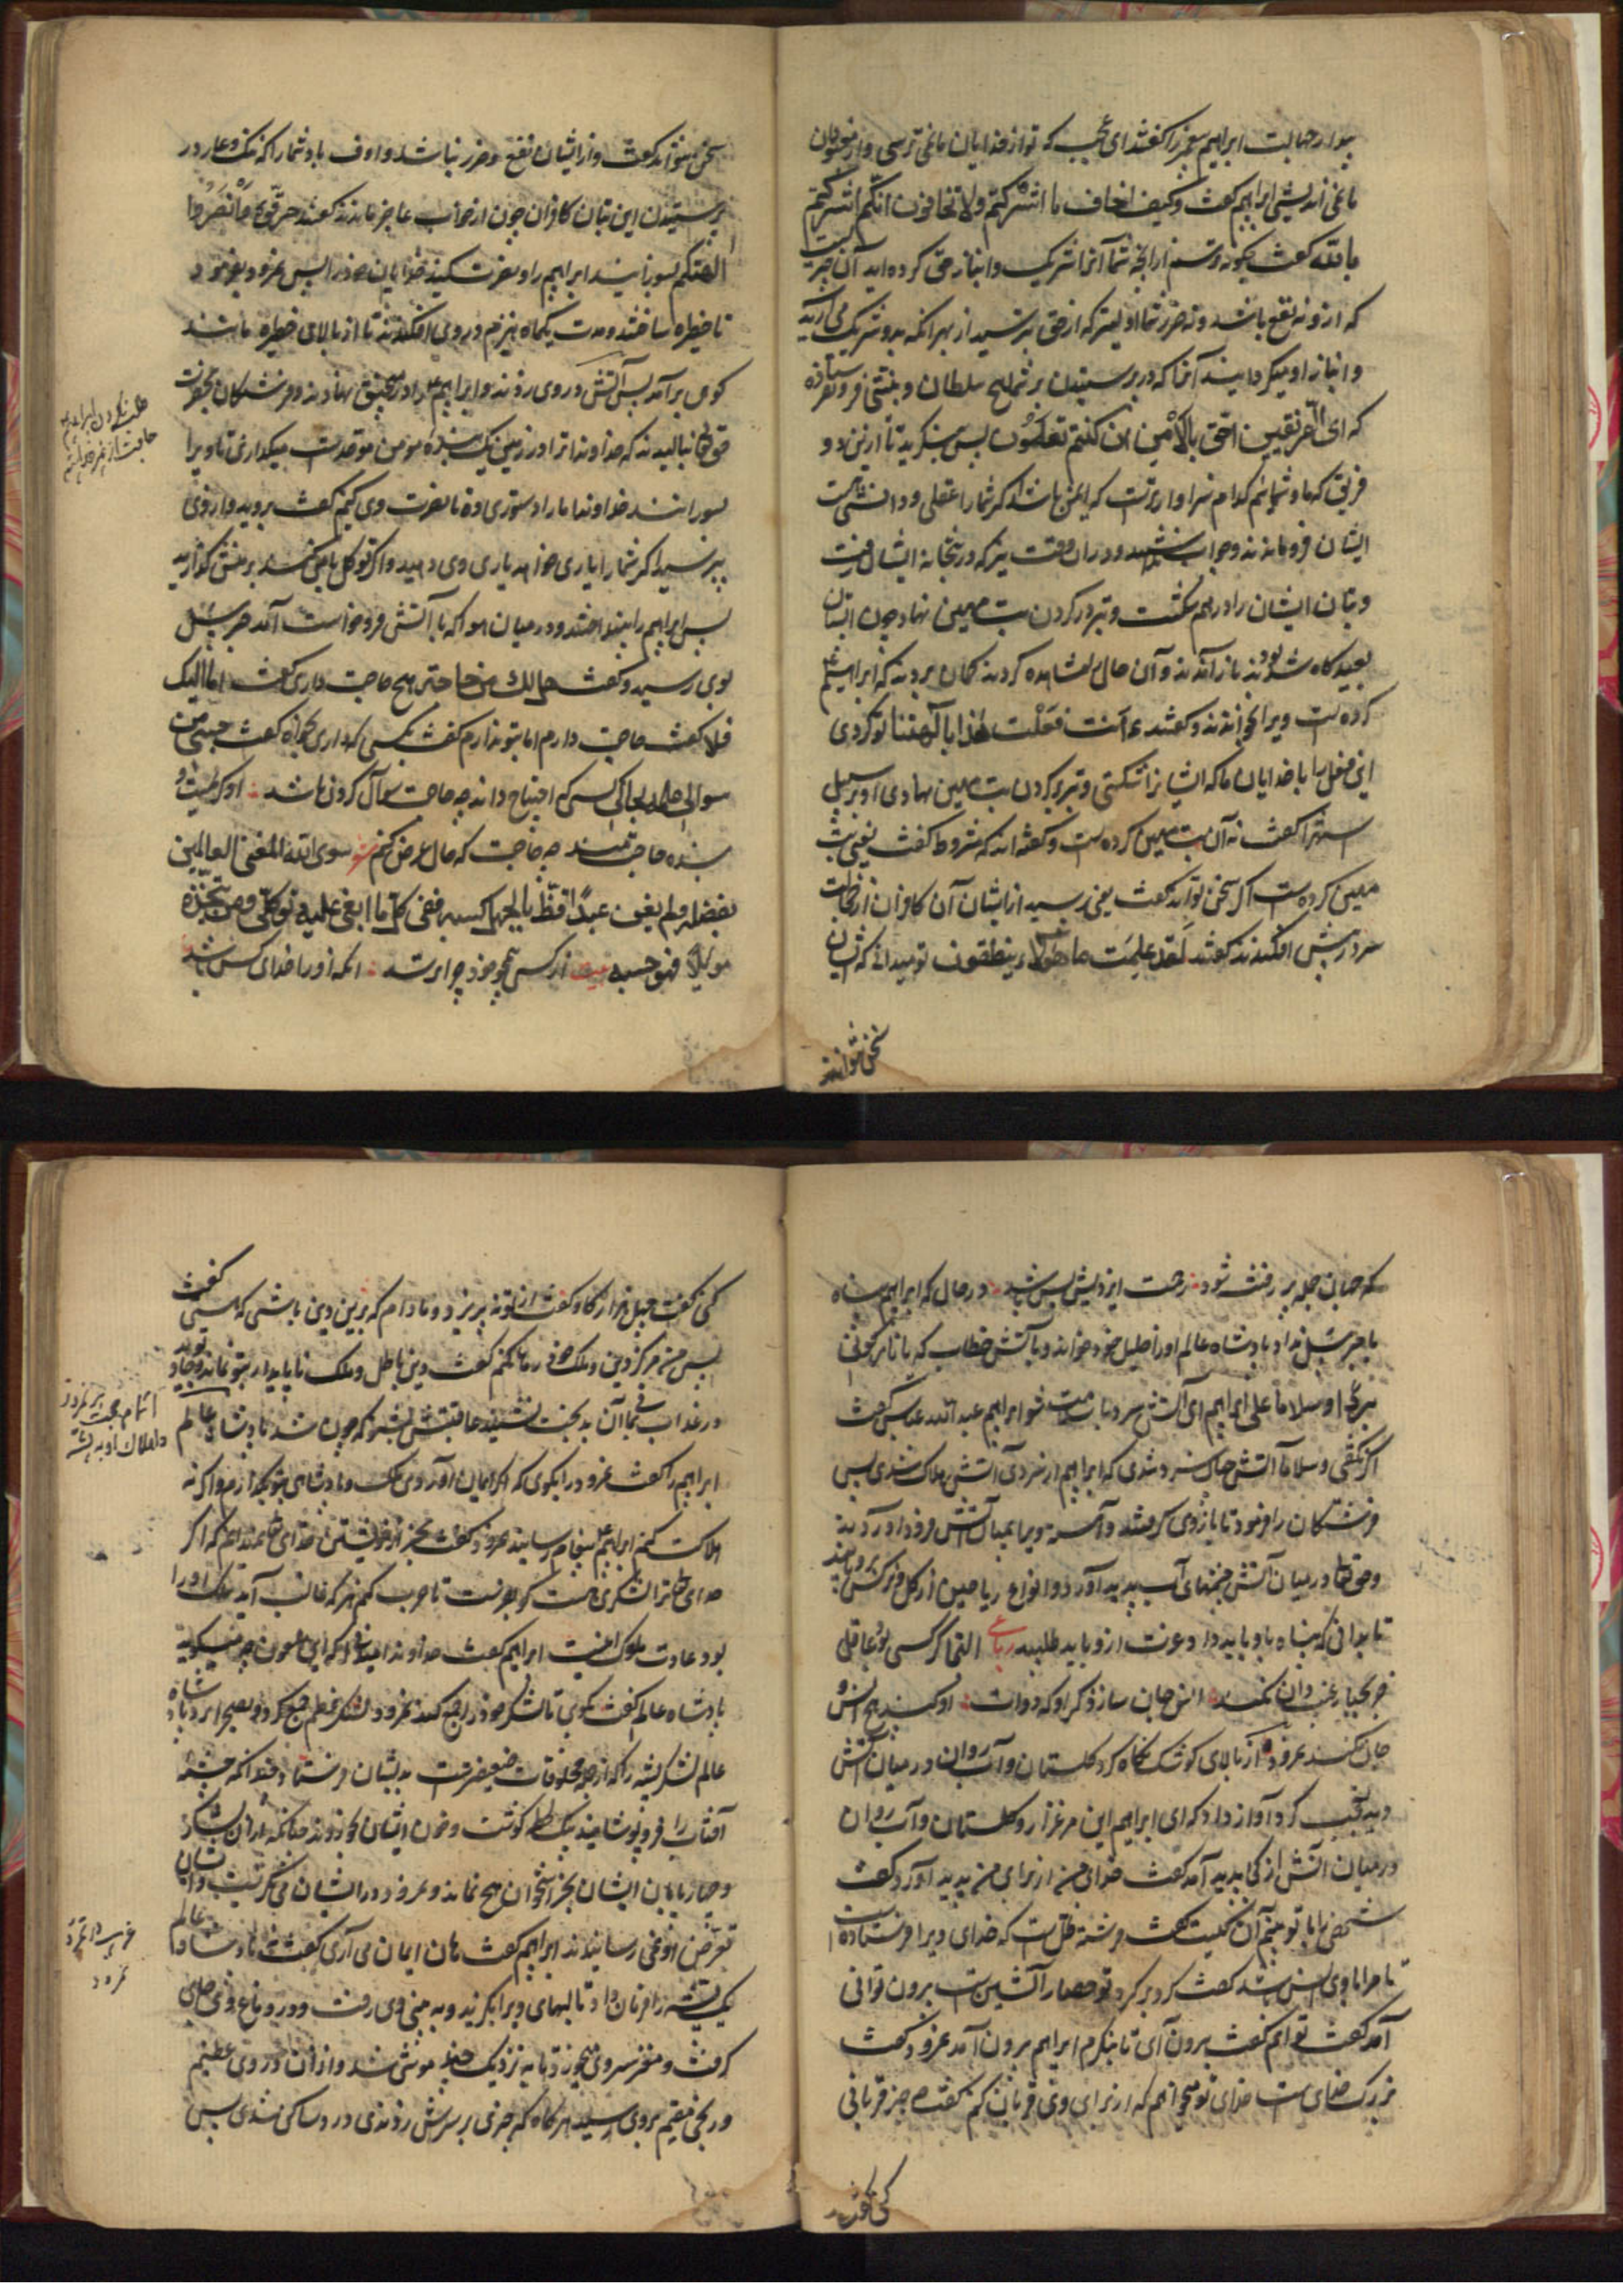 ابراهیم پیغمبر را گفتند ای عجب که تو از خدایان ما نمی ترسی و از
نمی اندیشی ابراهیم گفت وکیف اخاف ما اشرکتم ولا تخافون انکم اشرکتم
بالله گفت چگونه ترسم از آنچه شما آنرا شریک و انباز حق کرده اید آن
که ازو نه نفع باشد و نه ضرر شما اولیتر که از حق بترسید از بهر آنکه بدو شریک می آرید
و انباز او میگردانید آنرا که در پرستیدن بر شما هیچ سلطان و فرو نفرستاده
که ای الفریقین احق بالامن ان کنتم تعلمون پس بنگرید تا ازین دو
فریق که ما و شمائیم کدام سزاوارترست که ایمن باشد اگر شما را عقلی و دانشی
ایشان فرو ماندند و جواب و در آن وقت نیز که در بتخانه ایشان رفت
و بتان ایشان را درهم شکست و تبر در گردن بت مهین نهاد چون
بعیدگاه شده بودند باز آمدند و آن حال مشاهده کردند گمان بردند که ابراهیم
کرده است ویرا بخواندند و گفتند ءانت فعلت هذا بالهتنا تو کردی
این فعل با خدایان ما که ایشانرا شکستی و تبر در گردن بت مهین نهادی او بر سبیل
استهزا گفت نه آن بت مهین کرده است و گفته اند که مشروط گفت یعنی بت
مهین کرده است اگر سخن تواند گفت یعنی بپرسید از ایشان آن کافران از خجالت
سر در پیش افکندند گفتند لقد علمت ما هولاء ینطقون تو میدانی که ایشان
سخن نتوانند
سخن نتوانند گفت و از ایشان نفع و ضرر نباشد و اف باد شما را که ننگ و عار در
پرستیدن این بتان کافران چون از جواب عاجز ماندند گفتند حرقوه وانصروا
الهتکم بسوزانید ابراهیم را و نصرت کنید خدایان خود را پس نمرود بفرمود
تا حظیره ساختند و مدت یکماه هیزم در وی افکندند تا از بالای حظیره مانند
کوهی برآمد پس آتش در وی زدند و ابراهیم را در منجنیق نهادند و فرشتگان بحضرت
حق تعالی بنالیدند که خداوندا ترا در زمین یک بنده مومن موحدست میگذاری تا ویرا
بسوزانند خداوندا ما را دستوری ده تا نصرت وی کنیم گفت بروید و از وی
بپرسید اگر شما را یاری خواهد یاری وی دهید و اگر توکل با من کند بر منش گذارید
پس ابراهیم را بینداختند و در میان هوا که با آتش فرو خواست آمد جبرئیل
بوی رسید و گفت هل لك من حاجة هیچ حاجت داری گفت اما الیک
فلا گفت حاجت دارم اما بتو ندارم گفت بکسی که داری بخواه گفت حسبی من
سوالی علمه بحالی کسی که احتیاج داند چه حاجت سوال کردن باشد
بنده حاجتمند چه حاجت که حال عرض کنم سوی الله المغنی العالمین
بفضله ولم یغن عبدا قط
مولاه فهو حسبه بیت از کس بجو خود چرا ترسد آنکه او را خدای کس باشد
طلب نکردن ابراهیم
حاجت از غیر خدا
که جهان جمله پر رفته شود رحمت ایزدیش بس باشد در حال که ابراهیم پناه
با جبرئیل نداد پادشاه عالم او را خلیل خود خواند و با آتش خطاب کرد یا نار کونی
بردا وسلاما علی ابراهیم ای آتش سرد با سلامت شو ابراهیم عبد الله عباس گفت
اگر نگفتی وسلاما آتش چنان سرد شدی که ابراهیم از سردی آتش هلاک شدی پس
فرشتگان را فرمود تا بازوی گرفتند و آهسته ویرا بمیان آتش فرود آوردند
و حق تعالی در میان آتش چشمهای آب پدید آورد و انواع ریاحین از گل و نرگس
تا بدانی که پناه باو باید داد و عزت ازو باید طلبید رباعی التجا گر کسی بود عاقل
جز بجبار غیب دان نکند انس جان ساز ذکر او که دوات او کند هیچ انس و
جان نکند نمرود از بالای کوشک نگاه کرد گلستان و آب روان در میان آتش
دید تعجب کرد آواز داد که ای ابراهیم این مرغزار و گلستان و آب روان
در میان آتش از کجا پدید آمد گفت خدای من از برای من پدید آورد گفت
شخصی را با تو می بینم آن کیست گفت فرشته ظل است که خدای ویرا فرستاده است
تا مرا با وی انس باشد گفت گرد بر گرد تو حصار آتشین است برون توانی
آمد گفت توانم گفت برون آی تا بنگرم ابراهیم برون آمد نمرود گفت
بزرگ خدای است خدای تو میخواهم که از برای وی قربان کنم گفت چه چیز قربانی
کنی گفت
کنی گفت چهل هزار گاو گفت از تو نپذیرد و مادام که برین دین باشی که هستی گفت
پس من هرگز دین و ملک خود رها نکنم گفت دین باطل و ملک ناپایدار بتو نماند
در عذاب بمانی آن بدبخت نشنید عاقبتش بشنو که چون شد پادشاه عالم
ابراهیم را گفت نمرود را بگوی که اگر ایمان آوردی ملک و پادشاهی بتو بگذارم و اگر نه
هلاکت کنم ابراهیم پیغام رسانید نمرود گفت بجز از خویشتن خدای نمیدانم که اگر
خدای ترا لشکری هست گو بفرست تا حرب کنم هر که غالب آید ملک او را
بود عادت ملوک اینست ابراهیم گفت خداوندا که این ملعون چه میگوید
پادشاه عالم گفت بگوی تا لشکر خود را جمع کند نمرود لشکر عظیم جمع کرد و بصحرا برد پادشاه
عالم لشکر پشه را که از جمله مخلوقات ضعیفترست بدیشان فرستاد چندانکه چشمه
آفتاب را فرو پوشانیدند بیک لحظه گوشت و خون ایشان بخوردند چنانکه از آن لشکر
و چارپایان ایشان بجز استخوان هیچ نماند و نمرود در ایشان می نگریست و ایشان
تعرض او نمی رسانیدند ابراهیم گفت هان ایمان می آری گفت نه پادشاه عالم
یک پشه را فرمان داد تا لبهای ویرا بگزید و به بینی وی رفت و در دماغ وی جای
گرفت و مغز سر وی بخورد تا به نزدیک موشی شد و از آن درد وی عظیم
و رنجی مقیم بروی رسید هر گاه که چیزی بر سرش زدندی درد ساکن شدی پس
اتمام حجت بر نمرود
و اهلاک او به پشه
نمرود